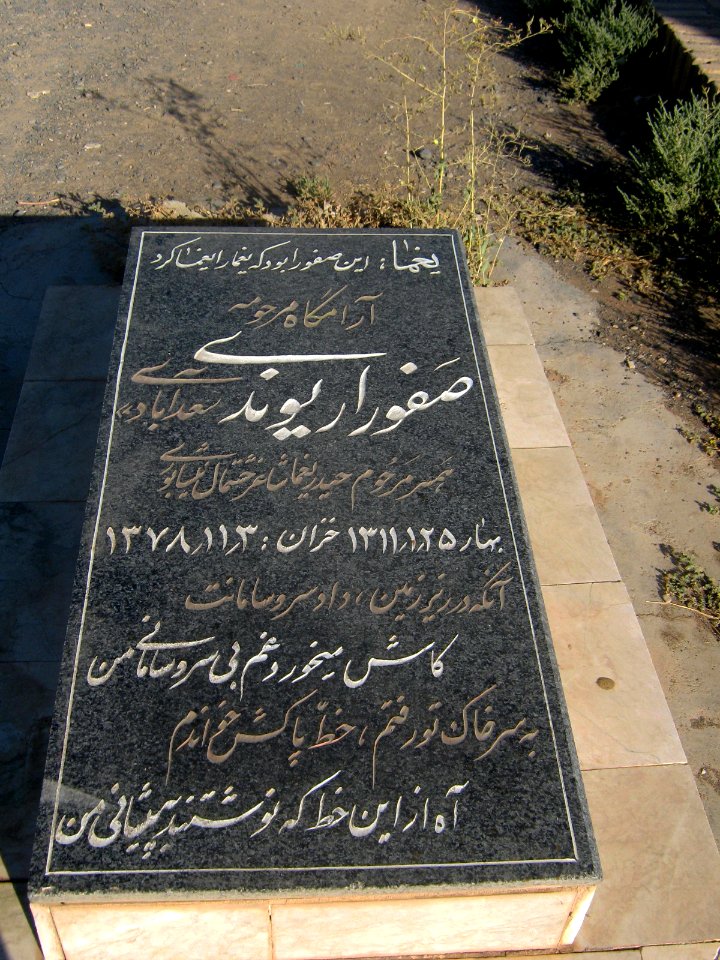 یغما: این صفورا بود که یغما را یغما کرد
آرامگاه مرحومه
صَفورا ریوندی سعدآبادی
همسر مرحوم حیدر یغما شاعر خشتمال نیشابوری
بهار ۱۳۱۱٫۱٫۲۵ خزان: ۱۳۷۸٫۱۱٫۳
آنکه در زیر زمین، داد سر و سامانت
کاش میخورد غم بی سر و سامانی من
به سر خاک تو رفتم، خطّ پاکش خواندم
آه از این خط که نوشتند به پیشانی من